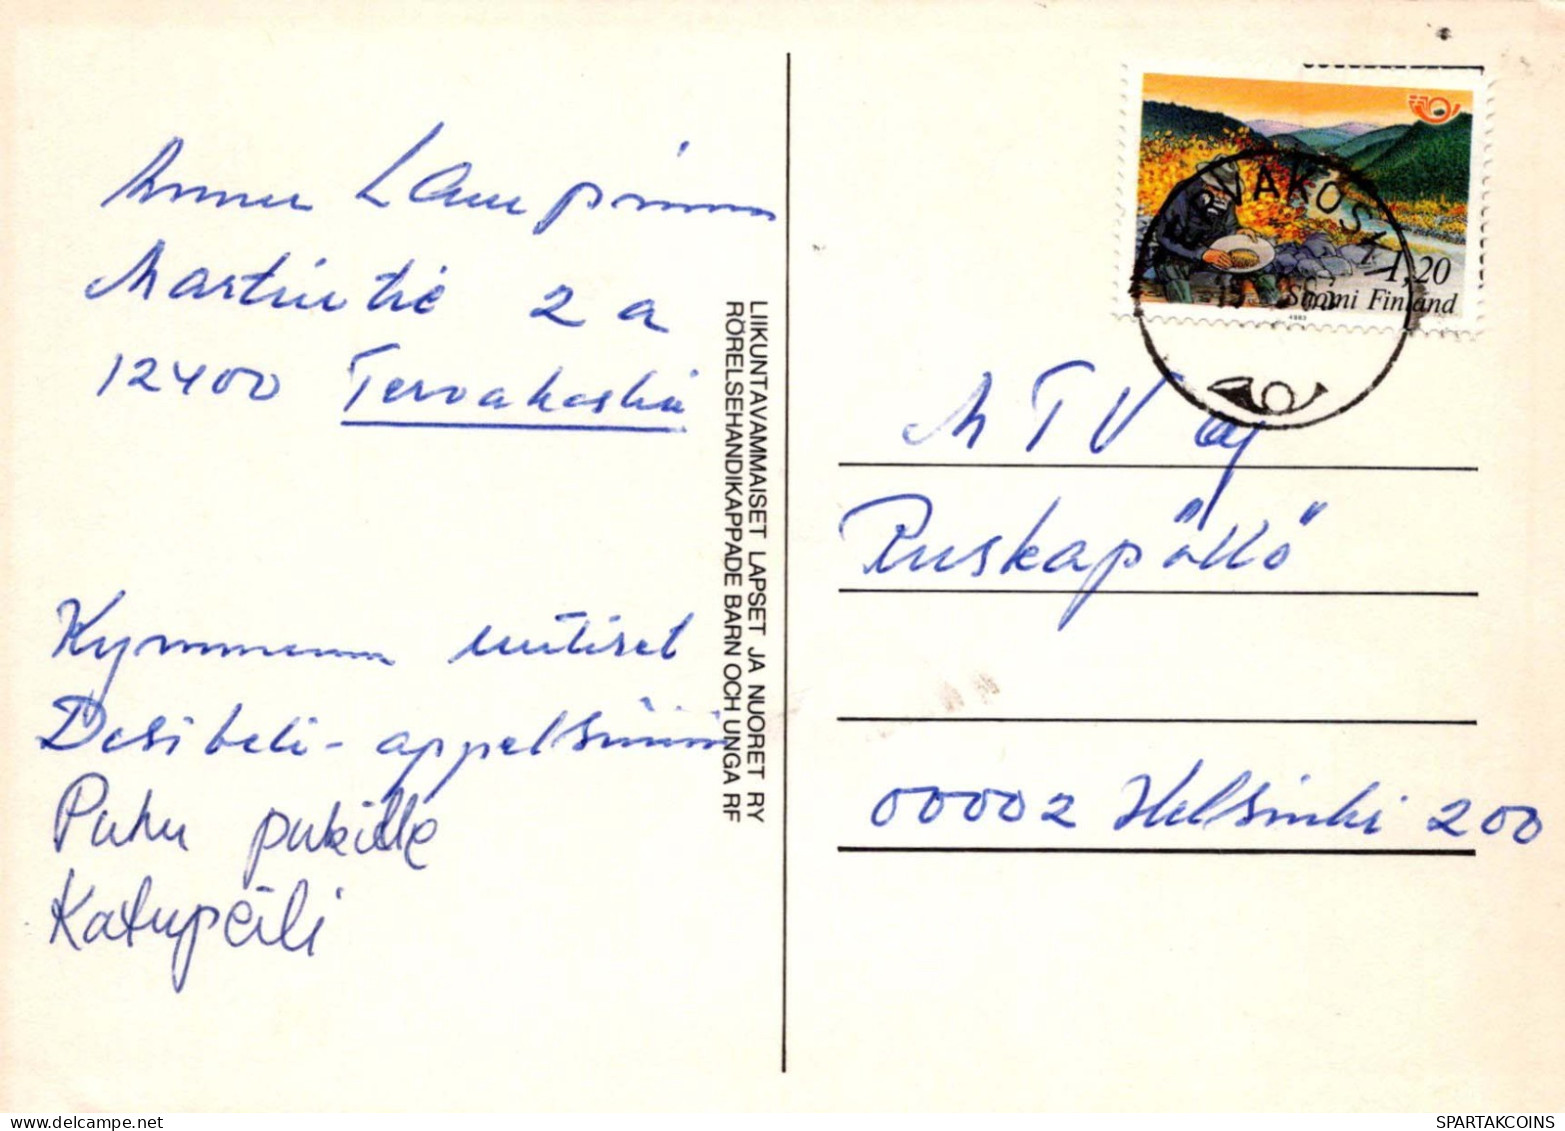 Lampinen
Martintie 2 a
12400 Tervakoski
Kymmenen uutiset
Desibeli- appelsiini
Puhu pukille
Katupeili
LIIKUNTAVAMMAISET LAPSET JA NUORET RY
RÖRELSEHANDIKAPPADE BARN OCH UNGA RF
TERVAKOSKI
1,20
Suomi Finland
1983
MTV oy
Ruskapöllö
00002 Helsinki 200
SPARTAKCOINS
delcampe.net